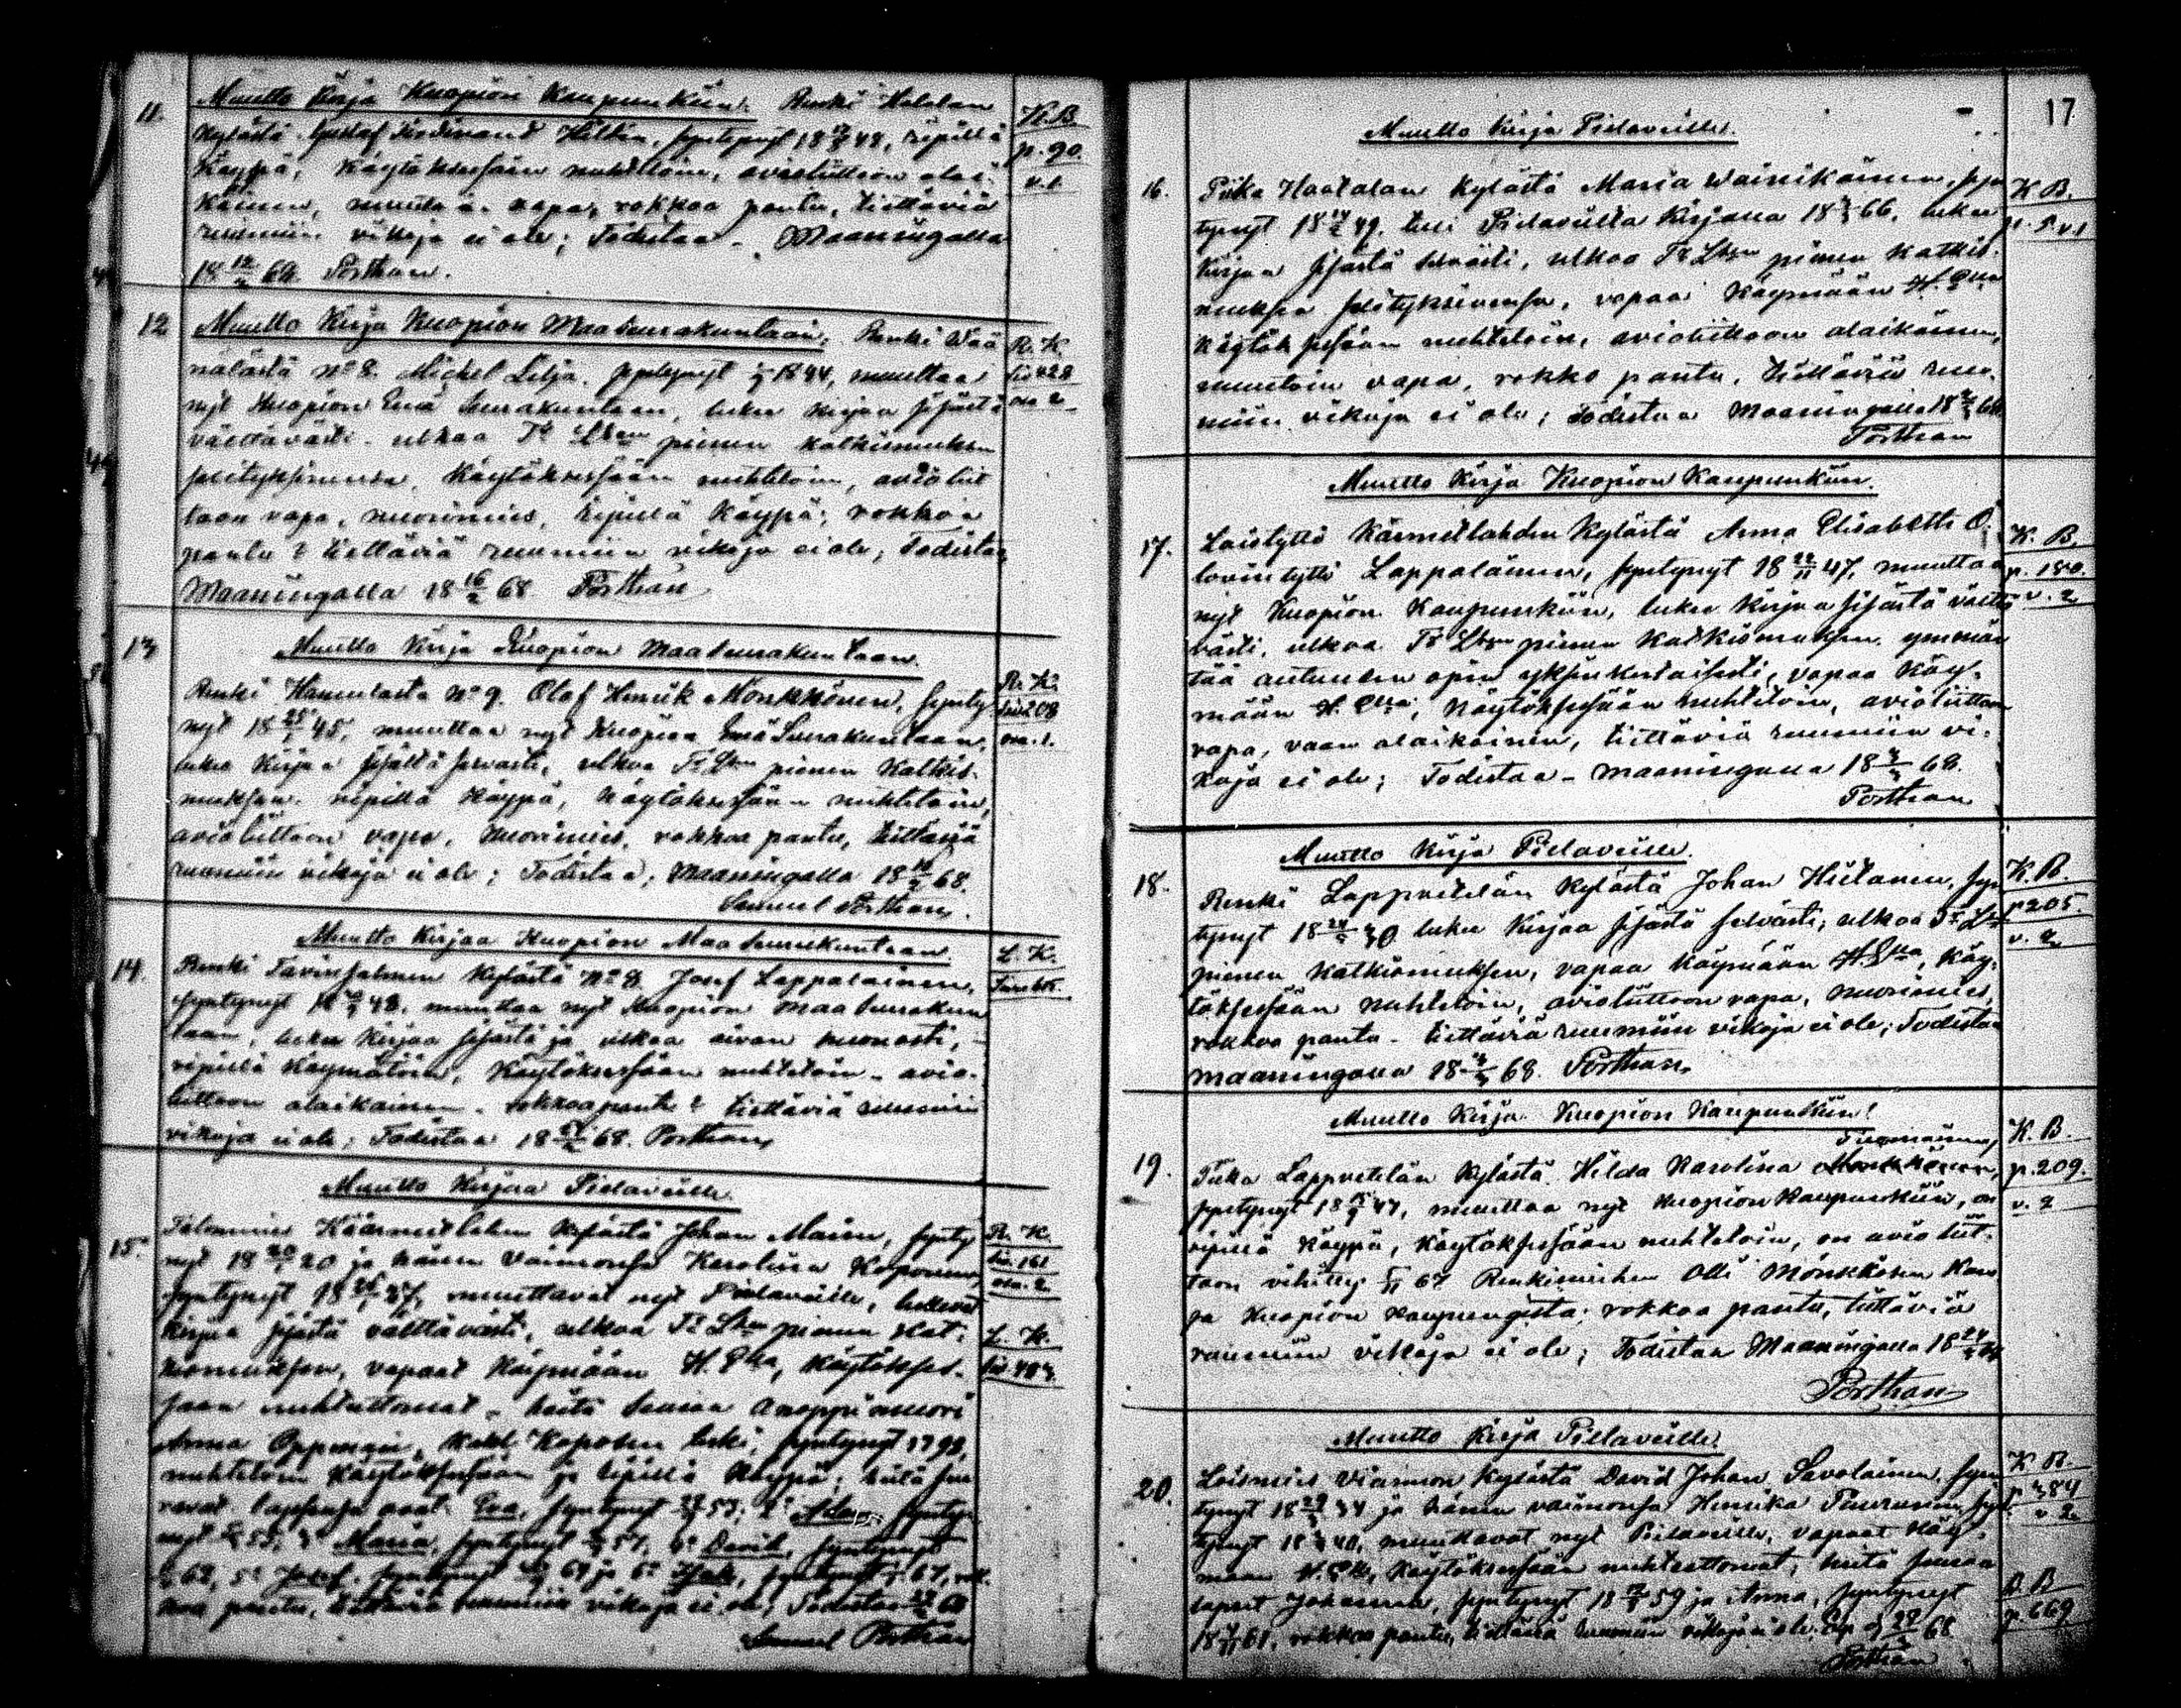 11. Muutto Kirja Kuopion Kaupunkiin. Renki Halolan
K.B.
kylästä Gustaf Ferdinand syntynyt 18 48, ripillä
p. 90.
käypä, käytöksessään nuhteloin, avioliittoon alai-
v. 1
käinen, muuten vapa, rokkoa pantu, tiettäviä
ruumiin vikoja ei ole; Todistaa - Maaningalla
18 12/2 68. Porthan.
12 Muutto Kirja Kuopion Maaseurakuntaan, Renki Wää
R. K.
nälästä No 8. Michel Lilja, syntynyt 1844, muuttaa
siv 428
nyt Kuopion Emä Seurakuntaan, lukee kirjaa sisästä
osa 2
välttävästi ulkoa Tri Lthrn pienen katkismuksen
selityksinensä, Käytöksessään nuhteloin, avioliit
toon vapa, nuorimies, ripillä käypä, rokkoa
pantu ? tiettäviä ruumiin vikoja ei ole; Todistaa
Maaningalla 18 16/2 68. Porthan
13 Muutto Kirja Kuopion Maaseurakuntaan.
Renki Hamulasta No 9. Olof Henrik Mönkkönen, synty-
R. K.
siv 208
nyt 18 45, muuttaa nyt Kuopion Emä Seurakuntaan,
osa. 1.
lukee Kirjaa sisältä selvästi, ulkoa Tri Lthrn pienen Katkis-
muksen ripillä käypä, käytöksessään nuhteloin,
avioliittoon vapa, nuorimies, rokkoa pantu, tiettäviä
ruumiin vikoja ei ole; Todistaa; Maaningalla 18 68.
Samuel Porthan.
Muutto Kirjaa Kuopion Maaseurakuntaan
L. K.
14. Renki Tavinsalmen kylästä No 8 Josef Lappalainen,
syntynyt 48, muuttaa nyt Kuopion Maaseurakun
taan, lukee kirjaa sisästä ja ulkoa aivan huonosti,
ripillä käymätöin, käytöksessään nuhteloin - avio-
liittoon alaikäinen. rokkoa pantu ? tiettäviä ruumiin
vikoja ei ole; Todistaa 18 68. Porthan
Muutto Kirjaa Pielaveille.
15. Talonmies Käärmelahden kylästä Johan synty
R. K.
nyt 18 20 ja hänen Vaimonsa Karolina Koponen,
siv. 161
osa. 2
syntynyt 18 27, muuttavat nyt Pielaveille, lukevat
kirjaa sisästä välttävästi, ulkoa Tri Lthrn pienen Kat-
L. K.
kismuksen, vapaat käymään H. Ella, käytökses-
sään nuhteettomat, heitä seuraa anoppi muori
Anna Koposen leski, syntynyt 1798,
nuhteloin käytöksessään ja ripillä käypä; heitä seu
ravat lapsensa ovat: Eva, syntynyt 53; synty-
nyt 55; 3o Maria, syntynyt 57, 4o David, syntynyt
62, 5o Josef, syntynyt 64 ja 6o syntynyt 67, rok-
koa pantu, tiettäviä ruumiin vikoja ei ole; Todistaa
Samuel Porthan
17
Muutto Kirja Pielaveille.
16. Piika Haatalan kylästä Maria Wäinikäinen, syn
K. B.
tynyt 18 49. tuli Pielaviltä kirjalla 18 66. lukee
p. 5 v 1
kirjaa sisästä selvästi, ulkoa Tri Lthrn pienen katkis-
muksen selityksinensä, vapaa käymään H. Ella
käytöksessään nuhteloin, avioliittoon alaikäinen,
muutoin vapa, rokko pantu, tiettäviä ruu-
miin vikoja ei ole; Todistaa Maaningalla 18 68
Porthan
Muutto Kirja Kuopion Kaupunkiin.
17. Loistyttö Käärmelahden kylästä Anna Elisabetti O-
K. B.
lovintyttö Lappalainen, syntynyt 18 22/11 47, muuttaa
p. 180.
nyt Kuopion Kaupunkiin, lukee kirjaa sisästä vältä
v. 2
västi, ulkoa Tri Lthrn pienen katkismuksen, ymmär
tää autuuden opin yksinkertaisesti, vapaa käy-
mään H. Ella; käytöksessään nuhteloin, avioliittoon
vapa, vaan alaikäinen, tiettäviä ruumiin vi-
koja ei ole; Todistaa - Maaningalla 18 68.
Porthan
Muutto Kirja Pielaveille.
18. Renki Lappvetelän kylästä Johan Hietanen, syn
K. B.
tynyt 18 40 lukee Kirjaa sisästä selvästi, ulkoa Tri Lth
p 205.
pienen katkismuksen, vapaa käymään H. Ella, käy-
v. 2
töksessään nuhteloin, avioliittoon vapa, nuorimies,
rokkoa pantu - tiettäviä ruumiin vikoja ei ole; Todistaa
Maaningalla 18 68. Porthan.
Muutto Kirja Kuopion Kaupunkiin!
19. Piika Lappvetelän kylästä Hilda Karolina Mönkkönen,
K. B.
p. 209.
syntynyt 18 47, muuttaa nyt Kuopion Kaupunkiin, on
v. 2
ripillä käypä, käytöksessään nuhteloin, on avioliit-
toon vihitty 67 Renkimiehen Olli Mönkkösen kans
sa Kuopion kaupungista; rokkoa pantu, tiettäviä
ruumiin vikoja ei ole; Todistaa Maaningalla 18
Porthan
Muutto Kirja Pielaveille.
20. Loismies Viannon kylästä David Johan Savolainen, syn
K. B.
tynyt 18 34 ja hänen vaimonsa Henrika syn
384
v 2
tynyt 18 40, muuttavat nyt Pielaveille, vapaat käy-
mään H. Ella, käytöksessään nuhteettomat, heitä seuraa
lapset Johanna, syntynyt 18 59 ja Anna, syntynyt
B. B
18 61, rokkoa pantu, tiettäviä ruumiin vikoja ei ole. 68
p. 669
Porthan